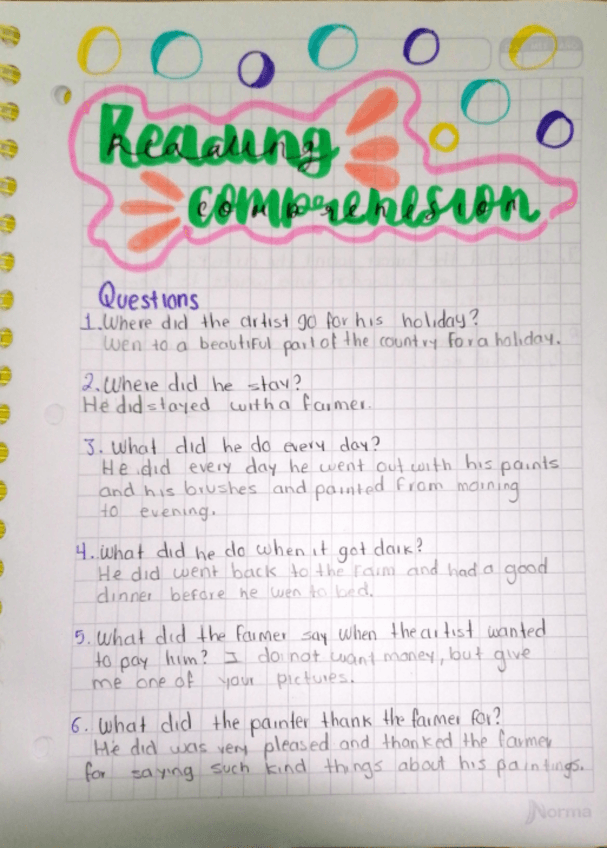 Reading
comprehension
Questions
1. Where did the artist go for his holiday?
Wen to a beautiful part of the country for a holiday.
2. Where did he stay?
He did stayed with a farmer.
3. What did he do every day?
He did every day he went out with his paints
and his brushes and painted from morning
to evening.
4. What did he do when it got dark?
He did went back to the farm and had a good
dinner before he wen to bed.
5. What did the farmer say when the artist wanted
to pay him? I do not want money, but give
me one of your pictures.
6. What did the painter thank the farmer for?
He did was very pleased and thanked the farmer
for saying such kind things about his paintings.
Norma